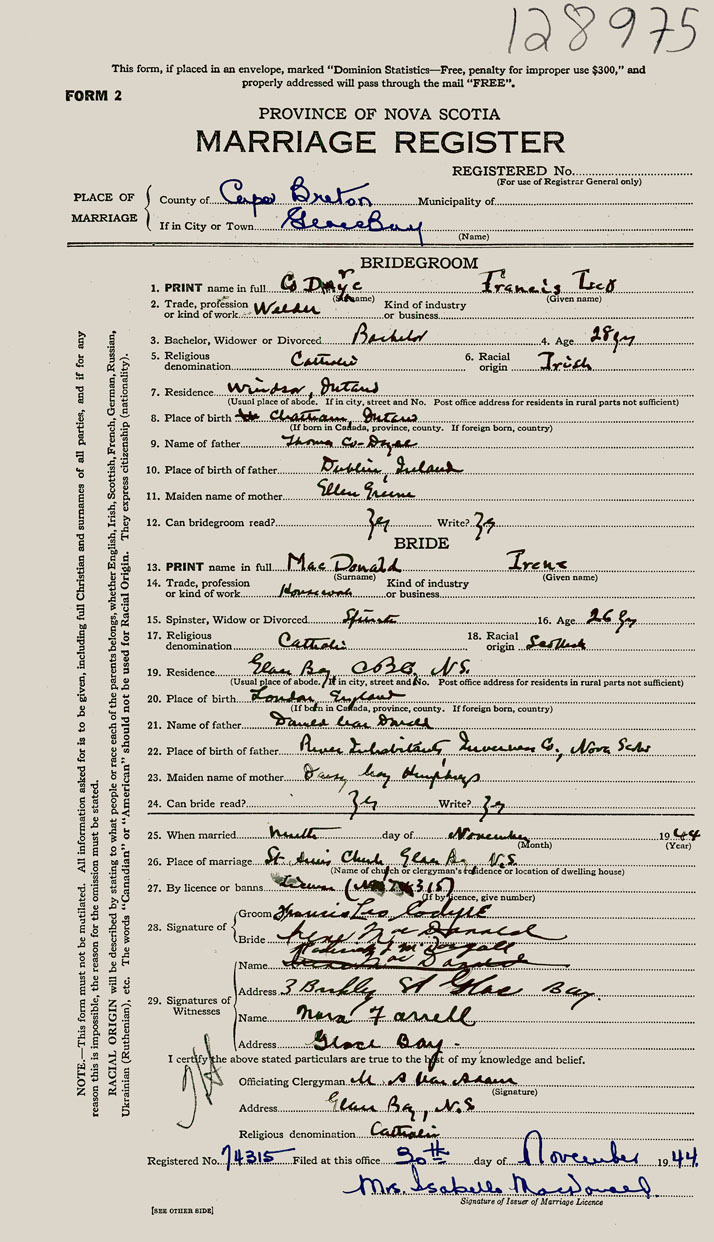 128975
This form, if placed in an envelope, marked “Dominion Statistics—Free, penalty for improper use $300,” and
properly addressed will pass through the mail “FREE”.
FORM 2
PROVINCE OF NOVA SCOTIA
MARRIAGE REGISTER
REGISTERED No.
(For use of Registrar General only)
PLACE OF MARRIAGE
County of Cape Breton Municipality of
If in City or Town Glace Bay
(Name)
BRIDEGROOM
1. PRINT name in full Francis Leo
(Surname) (Given name)
2. Trade, profession or kind of work Welder Kind of industry or business
3. Bachelor, Widower or Divorced Bachelor 4. Age 28 yr
5. Religious denomination Catholic 6. Racial origin Irish
7. Residence Windsor, Ontario
(Usual place of abode. If in city, street and No. Post office address for residents in rural parts not sufficient)
8. Place of birth Chatham, Ontario
(If born in Canada, province, county. If foreign born, country)
9. Name of father Thomas
10. Place of birth of father Dublin, Ireland
11. Maiden name of mother Ellen Greene
12. Can bridegroom read? Yes Write? Yes
BRIDE
13. PRINT name in full MacDonald Irene
(Surname) (Given name)
14. Trade, profession or kind of work Housework Kind of industry or business
15. Spinster, Widow or Divorced Spinster 16. Age 26 yr
17. Religious denomination Catholic 18. Racial origin Scottish
19. Residence Glace Bay, C.B.Co, N.S.
(Usual place of abode. If in city, street and No. Post office address for residents in rural parts not sufficient)
20. Place of birth London, England
(If born in Canada, province, county. If foreign born, country)
21. Name of father Daniel MacDonald
22. Place of birth of father River Inhabitants, Inverness Co, Nova Scotia
23. Maiden name of mother Daisy May Humphreys
24. Can bride read? Yes Write? Yes
25. When married Ninth day of November 1944
(Month) (Year)
26. Place of marriage Church Glace Bay N.S.
(Name of church or clergyman's residence or location of dwelling house)
27. By licence or banns License (No 74315)
(If by licence, give number)
28. Signature of
Groom Francis Leo
Bride Irene MacDonald
29. Signatures of Witnesses
Name
Address St Glace Bay.
Name Nora Farrell
Address Glace Bay -
I certify the above stated particulars are true to the best of my knowledge and belief.
Officiating Clergyman M A MacAdam
(Signature)
Address Glace Bay, N.S
Religious denomination Catholic
Registered No. 74315 Filed at this office 30th day of November 1944.
Mrs. Isabelle MacDonald.
Signature of Issuer of Marriage Licence
[SEE OTHER SIDE]
NOTE.—This form must not be mutilated. All information asked for is to be given, including full Christian and surnames of all parties, and if for any
reason this is impossible, the reason for the omission must be stated.
RACIAL ORIGIN will be described by stating to what people or race each of the parents belongs, whether English, Irish, Scottish, French, German, Russian,
Ukrainian (Ruthenian), etc. The words “Canadian” or “American” should not be used for Racial Origin. They express citizenship (nationality).